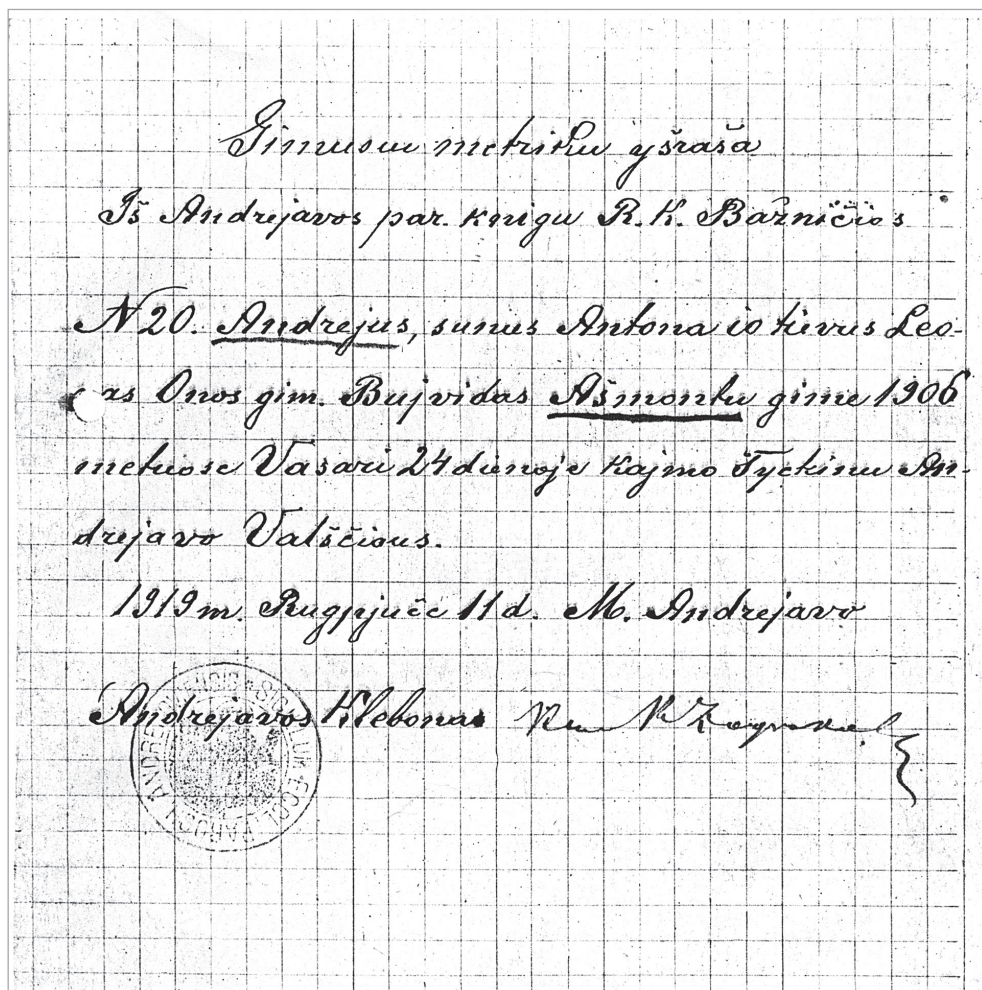 Gimusu metriku yšraša
Iš Andrejavos par. knigu R.K. Bažničios
N 20. Andrejus, sunus Antona io tievus Leo-
as Onos gim. Bujvidas Ašmontu gime 1906
metuose Vasari 24 dienoje Kajmo Tyckinu An-
drejavo Valščious.
1919 m. Rugpjuče 11 d. M. Andrejavo
Andrejavos Klebonas